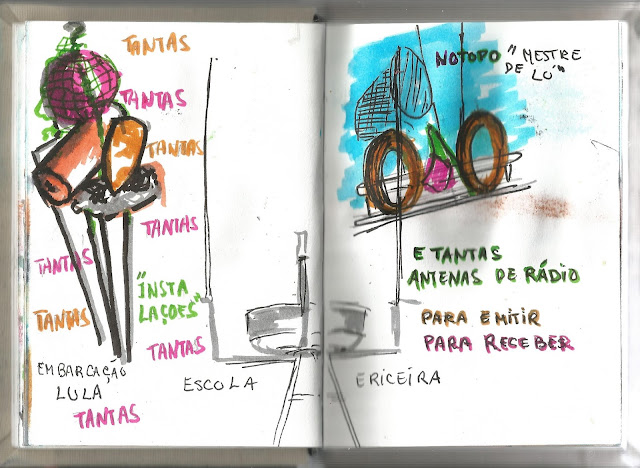 TANTAS
TANTAS
TANTAS
TANTAS
TANTAS
"INSTA
LAÇÕES"
TANTAS
TANTAS
EMBARCAÇÃO
LULA
TANTAS
ESCOLA
NO TOPO "MESTRE
DE LÓ"
E TANTAS
ANTENAS DE RÁDIO
PARA EMITIR
PARA RECEBER
ERICEIRA